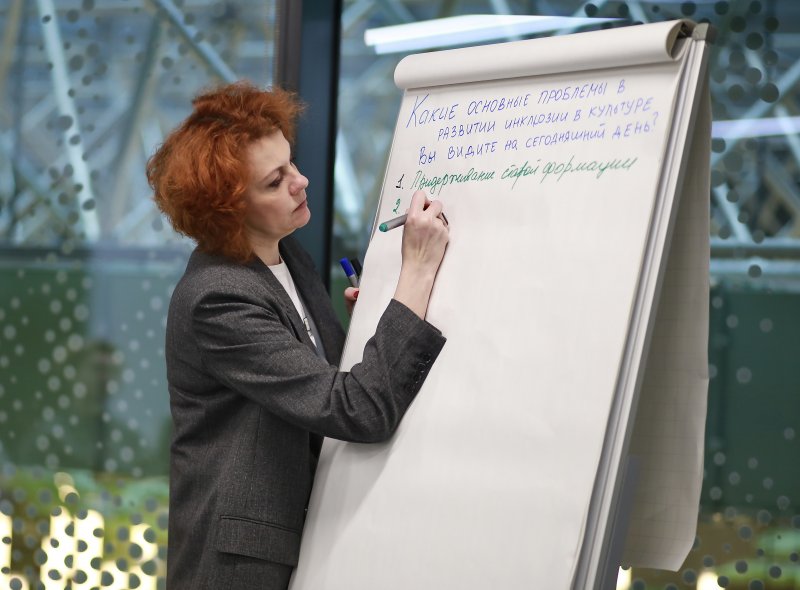 Какие основные проблемы в
развитии инклюзии в культуре
Вы видите на сегодняшний день?
1. Придерживание старой формации
2